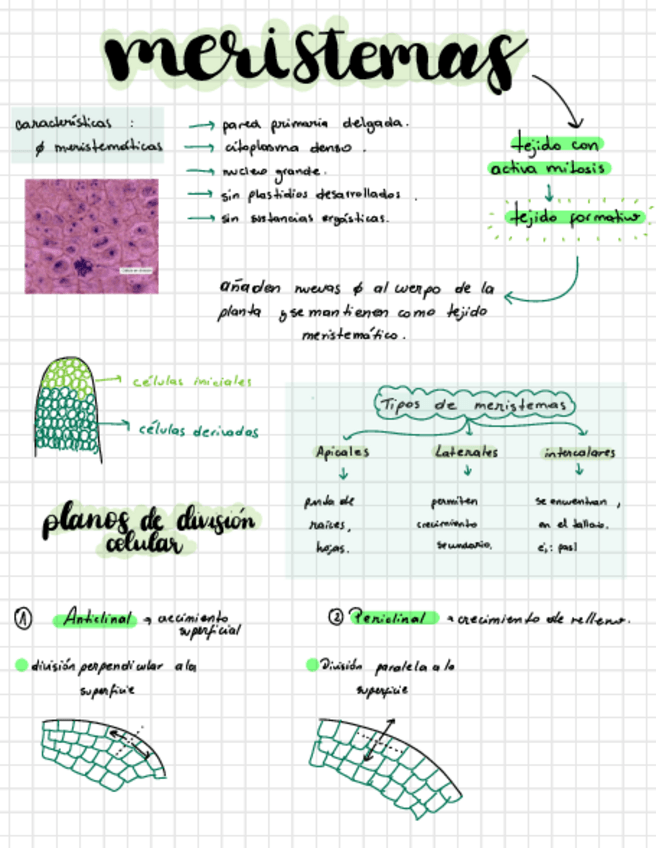 meristemas
características :
∅ meristemáticas
→ pared primaria delgada.
→ citoplasma denso .
→ nucleo grande.
→ sin plastidios desarrollados .
→ sin sustancias ergásticas.
tejido con
activa mitosis
tejido formativo
añaden nuevas ∅ al cuerpo de la
planta y se mantienen como tejido
meristemático.
células iniciales
células derivadas
Tipos de meristemas
Apicales
punta de
raíces,
hojas.
Laterales
permiten
crecimiento
secundario.
intercalares
se encuentran ,
en el tallo.
ej: past
planos de división
celular
① Anticlinal → crecimiento
superficial
división perpendicular a la
superficie
② Periclinal → crecimiento de relleno.
División paralela a la
superficie